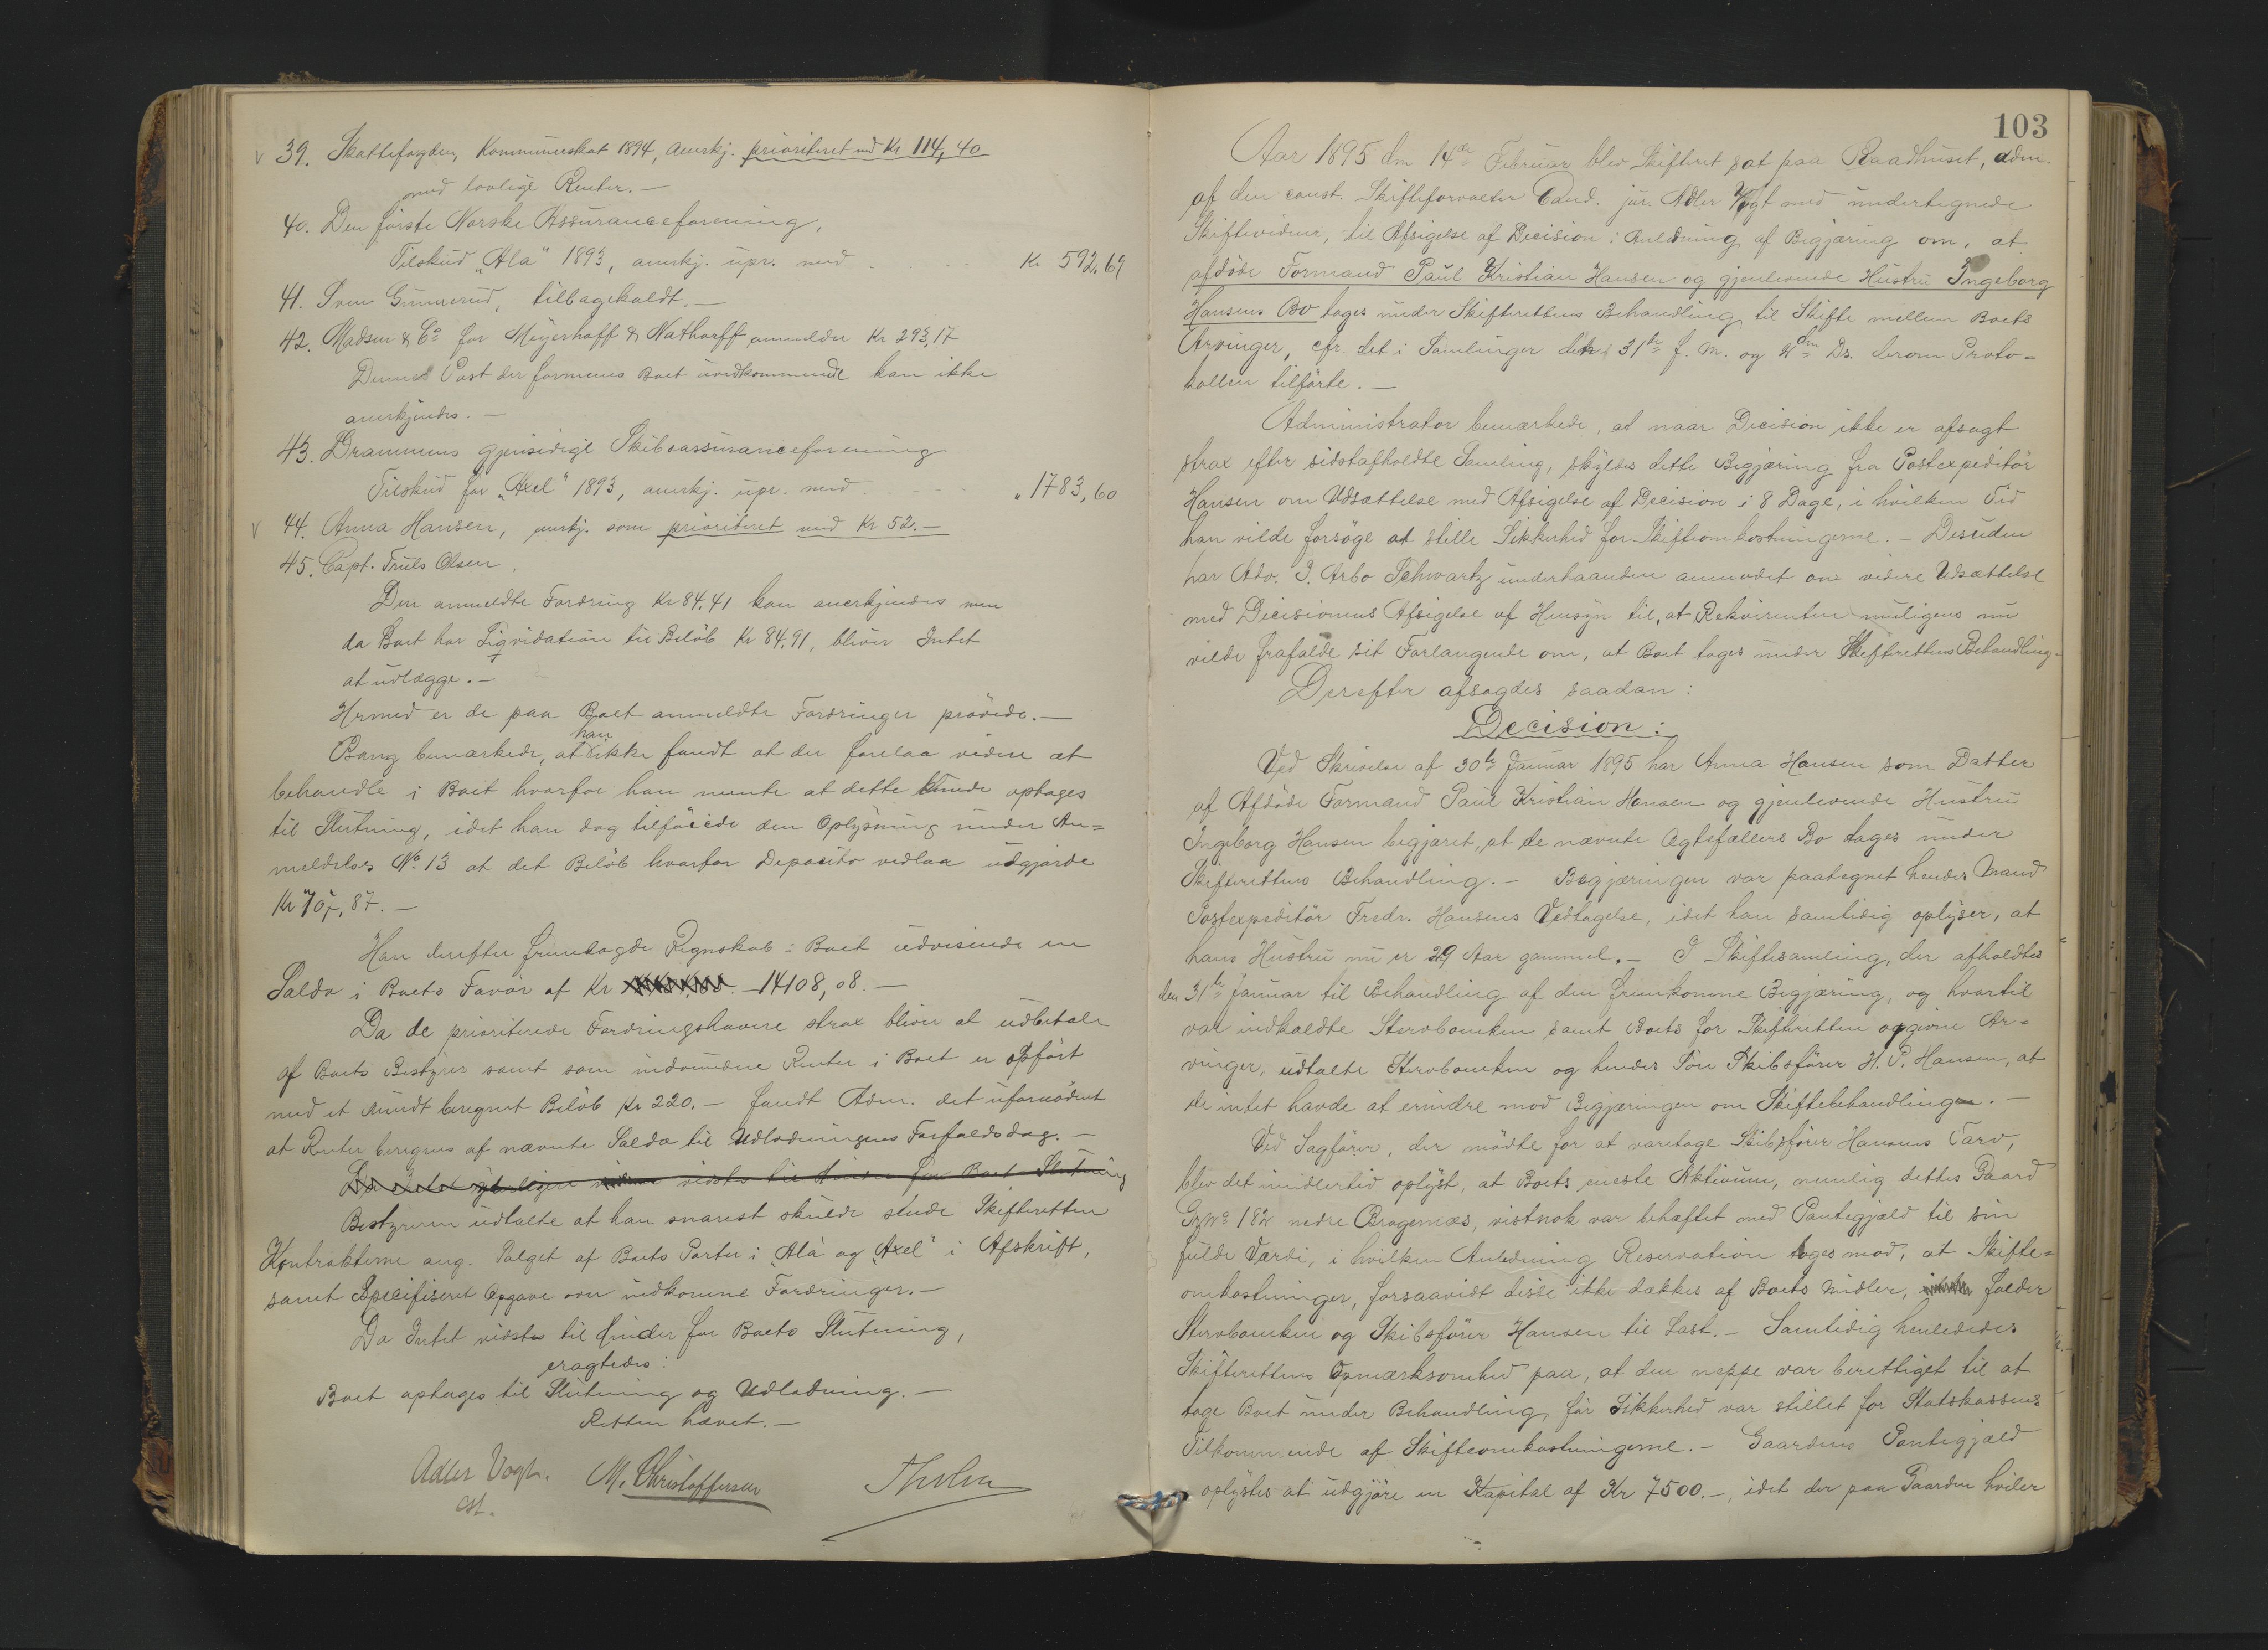 39. Skattefogden, Kommuneskat 1894, anerkj. prioriteret med Kr 114,40
med lovlige Renter. —
40. Den første Norske Assuranceforening,
Tilskud "Ala" 1893, anerkj. upr. med . . . . . Kr 592.69
41. Gunnerud, tilbagekaldt. —
42. Madsen & Co for Meyerhoff & Nathorff anmelder Kr 293,17
Denne Post der formenes Boet uvedkommende kan ikke
anerkjendes. —
43. Drammens gjensidige Skibsassuranceforening
Tilskud for "Axel" 1893, anerkj. upr. med . . . . . " 1783,60
44. Anna Hansen, anerkj. som prioriteret med Kr 52. —
45. Capt. Truls Olsen.
Den anmeldte Fordring Kr 84.41 kan anerkjendes men
da Boet har Liqvidation til Beløb Kr 84,91, bliver Intet
at udlægge. —
Hermed er de paa Boet anmeldte Fordringer prøvede. —
Bang bemærkede, at han ikke fandt at der forelaa videre at
behandle i Boet hvorfor han mente at dette kunde optages
til Slutning, idet han dog tilføiede den Oplysning under An=
meldelse No. 13 at det Beløb hvorfor Deposito vedlaa udgjorde
Kr
Han derefter fremlagde Regnskab i Boet udvisende en
Saldo i Boets Favør af Kr 14108,08. —
Da de prioriterede Fordringshavere strax bliver at udbetale
af Boets Bestyrer samt som indvundne Renter i Boet er opført
med et rundt beregnet Beløb Kr 220. — fandt Adm. det ufornødent
at Renter beregnes af nævnte Saldo til Udlodningens Forfaldsdag. —
Da Intet yderligere vidstes til Hinder for Boets Slutning
Bestyreren udtalte at han snarest skulde sende Skifteretten
Kontrakterne ang. Salget af Boets Parter i "Ala" og "Axel" i Afskrift,
samt specifiseret Opgave over indkomne Fordringer. —
Da Intet vidstes til Hinder for Boets Slutning,
eragtedes:
Boet optages til Slutning og Udlodning. —
Retten hævet. —
Adler Vogt. M. Christoffersen
cst.
103
Aar 1895 den 14de Februar blev Skifteret sat paa Raadhuset, adm.
af den const. Skifteforvalter Cand. jur. Adler Vogt med undertegnede
Skiftevidner, til Afsigelse af Decision i Anledning af Begjæring om, at
afdøde Formand Paul Kristian Hansen og gjenlevende Hustru Ingeborg
Hansens Bo tages under Skifterettens Behandling til Skifte mellem Boets
Arvinger, cfr. det i Samlinger den 31te f. M. og ds. derom Proto=
kollen tilførte. —
Administrator bemærkede, at naar Decision ikke er afsagt
strax efter sidstafholdte Samling, skyldes dette Begjæring fra Postexpeditør
Hansen om Udsættelse med Afsigelse af Decision i 8 Dage, i hvilken Tid
han vilde forsøge at stille Sikkerhed for Skifteomkostningerne. — Desuden
har Adv. J. Arbo Schwartz underhaanden anmodet om videre Udsættelse
med Decisionens Afsigelse af Hensyn til, at Rekvirenten muligens nu
vilde frafalde sit Forlangende om, at Boet tages under Skifterettens Behandling.
Derefter afsagdes saadan:
Decision:
Ved Skrivelse af 30te Januar 1895 har Anna Hansen som Datter
af Afdøde Formand Paul Kristian Hansen og gjenlevende Hustru
Ingeborg Hansen begjæret, at de nævnte Ægtefællers Bo tages under
Skifterettens Behandling. — Begjæringen var paategnet hendes Mand
Postexpeditør Fredr. Hansens Vedtagelse, idet han samtidig oplyser, at
hans Hustru nu er 29 Aar gammel. — I Skiftesamling, der afholdtes
den 31te Januar til Behandling af den fremkomne Begjæring, og hvortil
var indkaldte Stervboenken samt Boets for Skifteretten opgivne Ar=
vinger, udtalte Stervboenken og hendes Søn Skibsfører H. P. Hansen, at
de intet havde at erindre mod Begjæringen om Skiftebehandlingen. —
Ved Sagfører, der mødte for at varetage Skibsfører Hansens Tarv,
blev det imidlertid oplyst, at Boets meste Aktivum, nemlig dettes Gaard
Gr No 182 nedre Bragernæs, vistnok var behæftet med Pantegjæld til sin
fulde Værdi, i hvilken Anledning Reservation toges mod, at Skifte=
omkostninger, forsaavidt disse ikke dækkes af Boets Midler, falder
Stervboenken og Skibsfører Hansen til Last. — Samtidig henlededes
Skifterettens Opmærksomhed paa, at den neppe var berettiget til at
tage Boet under Behandling, før Sikkerhed var stillet for Statskassens
Tilkommende af Skifteomkostningerne. — Gaardens Pantegjæld
oplystes at udgjøre en Kapital af Kr 7500. —, idet der paa Gaarden hviler